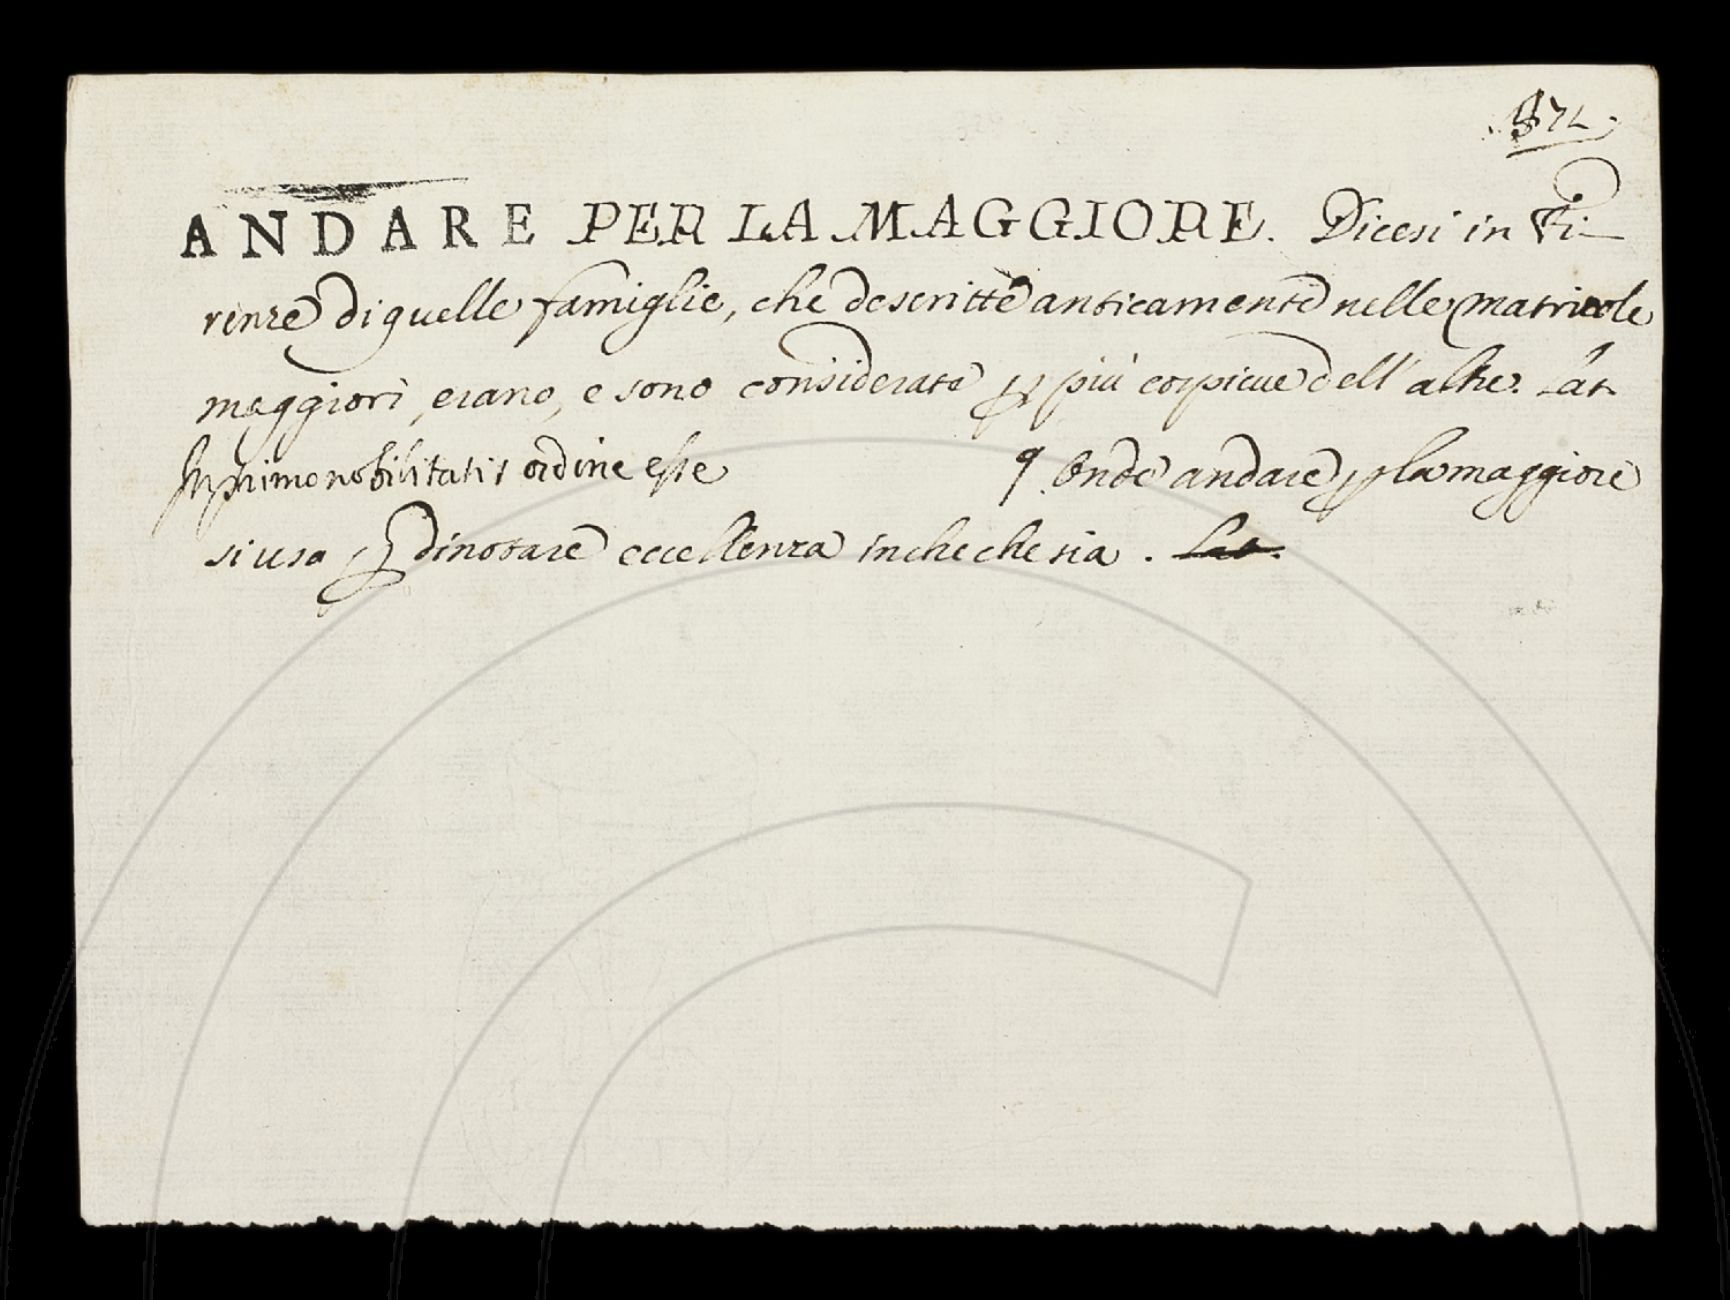 ANDARE PER LA MAGGIORE. Dicesi in Fi-
renze di quelle famiglie, che descritte anticamente nelle matricole
maggiori, erano, e sono considerate p più cospicue dell'altre. Lat.
In primo nobilitatis ordine esse § Onde andare p la maggiore
si usa p dinotare eccellenza in che che sia. Lat.